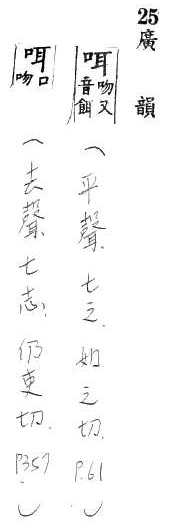 25 廣韻
咡吻又音餌（平聲、七之、如之切、P.61）
咡口吻（去聲、七志、仍吏切、P.357）